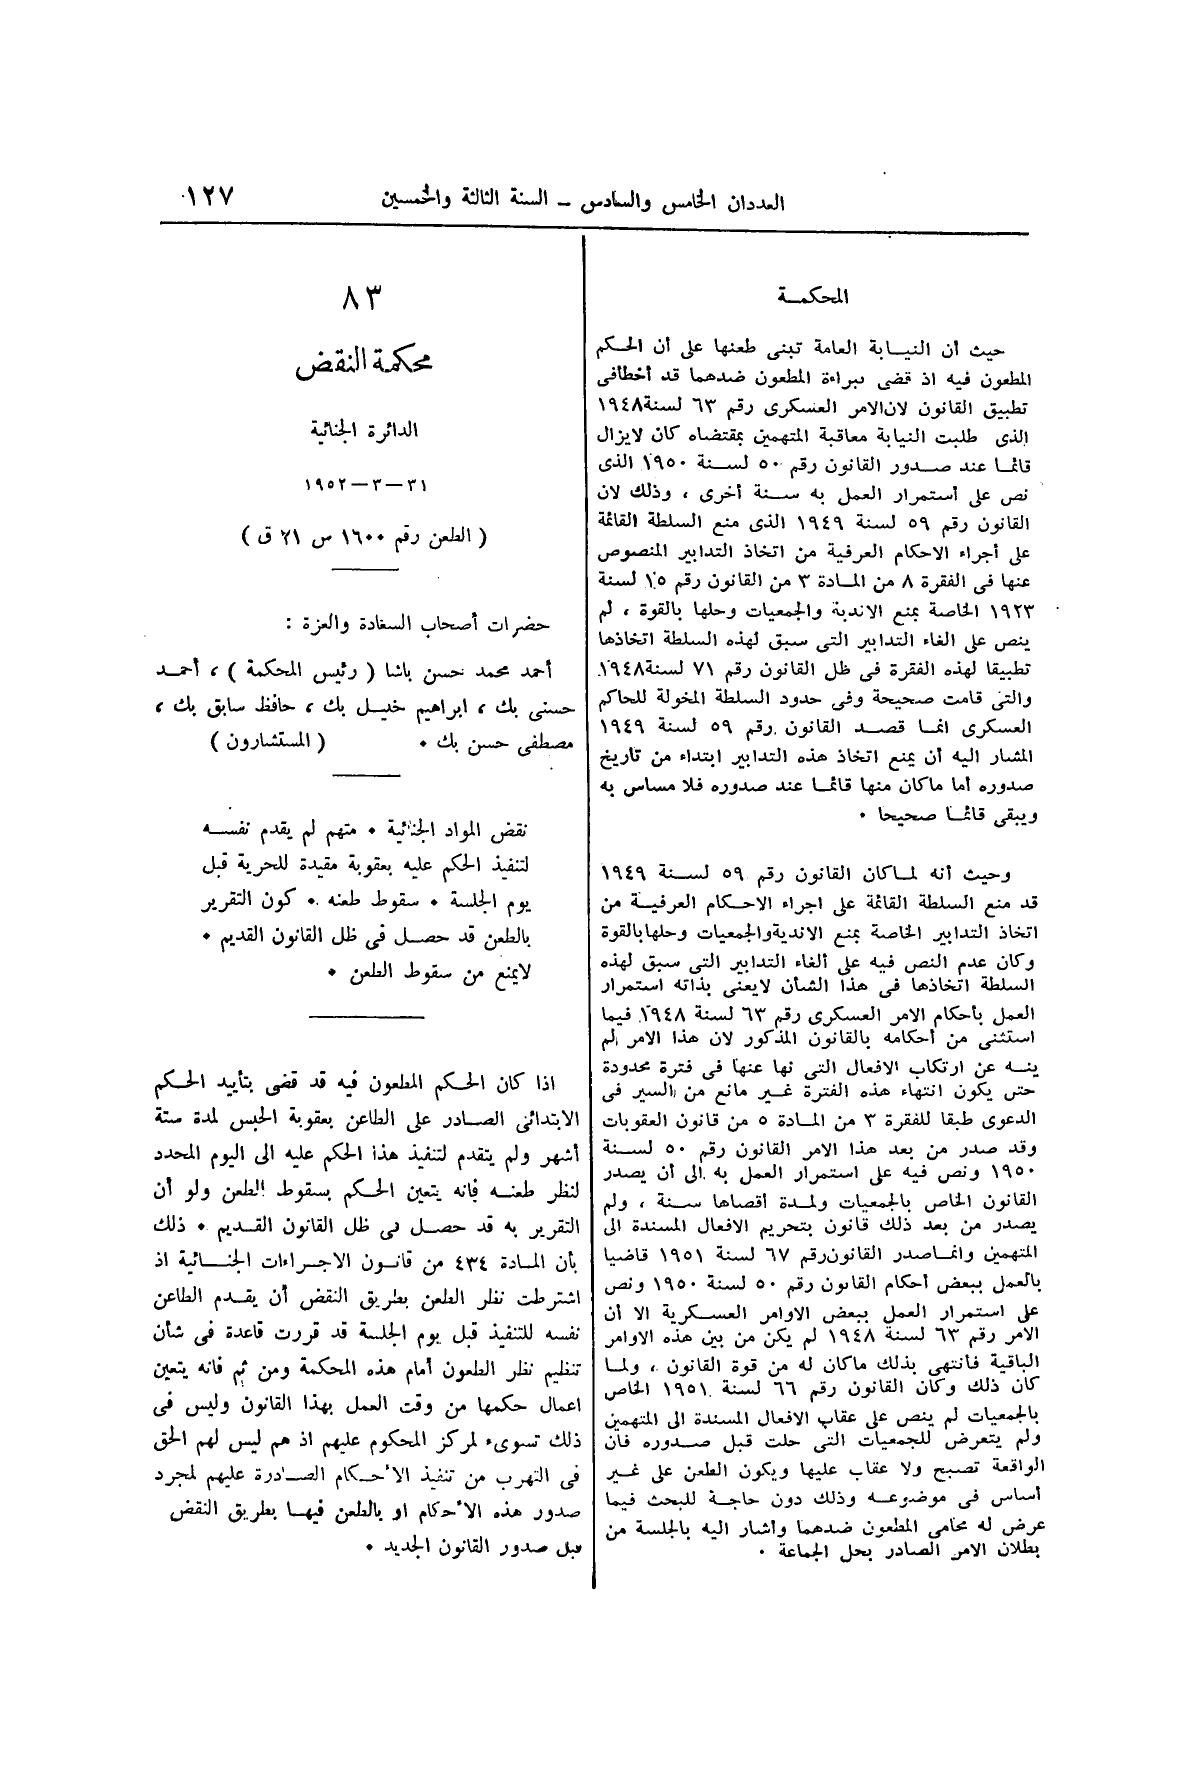 العددان الخامس والسادس - السنة الثالثة والخمسين
١٢٧
المحكمـة
حيث أن النيـابة العامة تبنى طعنها على أن الحـكم
المطعون فيه اذ قضى ببراءة المطعون ضدهما قد أخطأفى
تطبيق القانون لان الامر العسكرى رقم ٦٣ لسنة ١٩٤٨
الذى طلبت النيابة معاقبة المتهمين بمقتضاه كان لايزال
قائمـا عند صـدور القانون رقم ٥٠ لسـنة ١٩٥٠ الذى
نص على أستمرار العمل به سـنة أخرى ، وذلك لان
القانون رقم ٥٩ لسنة ١٩٤٩ الذى منع السلطة القائمة
على أجراء الاحكام العرفية من اتخاذ التدابير المنصوص
عنها فى الفقرة ٨ من المـادة ٣ من القانون رقم ١٥ لسنة
١٩٢٣ الخاصة بمنع الاندية والجمعيات وحلها بالقوة ، لم
ينص على الغاء التدابير التى سبق لهذه السلطة اتخاذها
تطبيقا لهذه الفقرة فى ظل القانون رقم ٧١ لسنة ١٩٤٨
والتى قامت صحيحة وفى حدود السلطة المخولة للحاكم
العسكرى انمـا قصـد القانون رقم ٥٩ لسنة ١٩٤٩
المشار اليه أن يمنع اتخاذ هذه التدابير ابتداء من تاريخ
صدوره أما ماكان منها قائمـا عند صدوره فلا مساس به
ويبقى قائمـا صحيحا .
وحيث أنه لمـاكان القانون رقم ٥٩ لسـنة ١٩٤٩
قد منع السلطة القائمة على اجراء الاحـكام العرفيـة من
اتخاذ التدابير الخاصة بمنع الانديةوالجمعيات وحلهابالقوة
وكان عدم النص فيه على ألغاء التدابير التى سبق لهذه
السلطة اتخاذها فى هذا الشأن لايعنى بذاته استمرار
العمل بأحكام الامر العسكرى رقم ٦٣ لسنة ١٩٤٨ فيما
استثنى من أحكامه بالقانون المذكور لان هذا الامر لم
ينـه عن ارتكاب الافعال التى نها عنها فى فترة محدودة
حتى يكون انتهاء هذه الفترة غـير مانع من السير فى
الدعوى طبقا للفقرة ٣ من المـادة ٥ من قانون العقوبات
وقد صدر من بعد هذا الامر القانون رقم ٥٠ لسـنة
١٩٥٠ ونص فيه على استمرار العمل به الى أن يصدر
القانون الخاص بالجمعيات ولمدة أقصاها سـنة ، ولم
يصدر من بعد ذلك قانون بتحريم الافعال المسندة الى
المتهمين وانمـاصدر القانونرقم ٦٧ لسنة ١٩٥١ قاضيا
بالعمل ببعض أحكام القانون رقم ٥٠ لسنة ١٩٥٠ ونص
على استمرار العمل ببعض الاوامر العسـكرية الا أن
الامر رقم ٦٣ لسنة ١٩٤٨ لم يكن من بين هذه الاوامر
الباقية فأنتهى بذلك ماكان له من قوة القانون ، ولمـا
كان ذلك وكان القانون رقم ٦٦ لسنة ١٩٥١ الخاص
بالجمعيات لم ينص على عقاب الافعال المسندة الى المتهمين
ولم يتعرض للجمعيات التى حلت قبل صـدوره فان
الواقعة تصبح ولا عقاب عليها ويكون الطعن على غـير
أساس فى موضوعـه وذلك دون حاجـة للبحث فيما
عرض له محامى المطعون ضدهما وأشار اليه بالجلسة من
بطلان الامر الصادر بحل الجماعة .
٨٣
محكمة النقض
الدائرة الجنائية
٣١-٣-١٩٥٢
( الطعن رقم ١٦٠٠ س ٢١ ق )
حضرات أصحاب السعادة والعزة :
أحمد محمد حسن باشا ( رئيس المحكمة ) ، أحمـد
حسنى بك ، ابراهيم خليـل بك ، حافظ سابق بك ،
مصطفى حسن بك . ( المستشارون )
نقض المواد الجنائية . متهم لم يقدم نفسـه
لتنفيذ الحكم عليه بعقوبة مقيدة للحرية قبل
يوم الجلسة . سقوط طعنه . كون التقرير
بالطعن قد حصـل فى ظل القانون القديم .
لايمنع من سقوط الطعن .
اذا كان الحـكم المطعون فيه قد قضى بتأييد الحـكم
الابتدائى الصـادر على الطاعن بعقوبة الحبس لمدة ستة
أشهر ولم يتقدم لتنفيذ هذا الحكم عليه الى اليوم المحدد
لنظر طعنـه فانه يتعين الحـكم بسقوط الطعن ولو أن
التقرير به قد حصـل فى ظل القانون القـديم . ذلك
بأن المـادة ٤٣٤ من قانـون الاجـراءات الجنـائية اذ
اشترطت نظر الطعن بطريق النقض أن يقـدم الطاعن
نفسه للتنفيذ قبل يوم الجلسة قد قررت قاعدة فى شأن
تنظيم نظر الطعون أمام هذه المحكمة ومن ثم فانه يتعين
اعمال حكمها من وقت العمل بهذا القانون وليس فى
ذلك تسوىء لمركز المحكوم عليهم اذ هم ليس لهم الحق
فى التهرب من تنفيذ الأحـكام الصـادرة عليهم لمجرد
صدور هذه الأحكام او بالطعن فيهـا بطريق النقض
قبل صدور القانون الجديد .